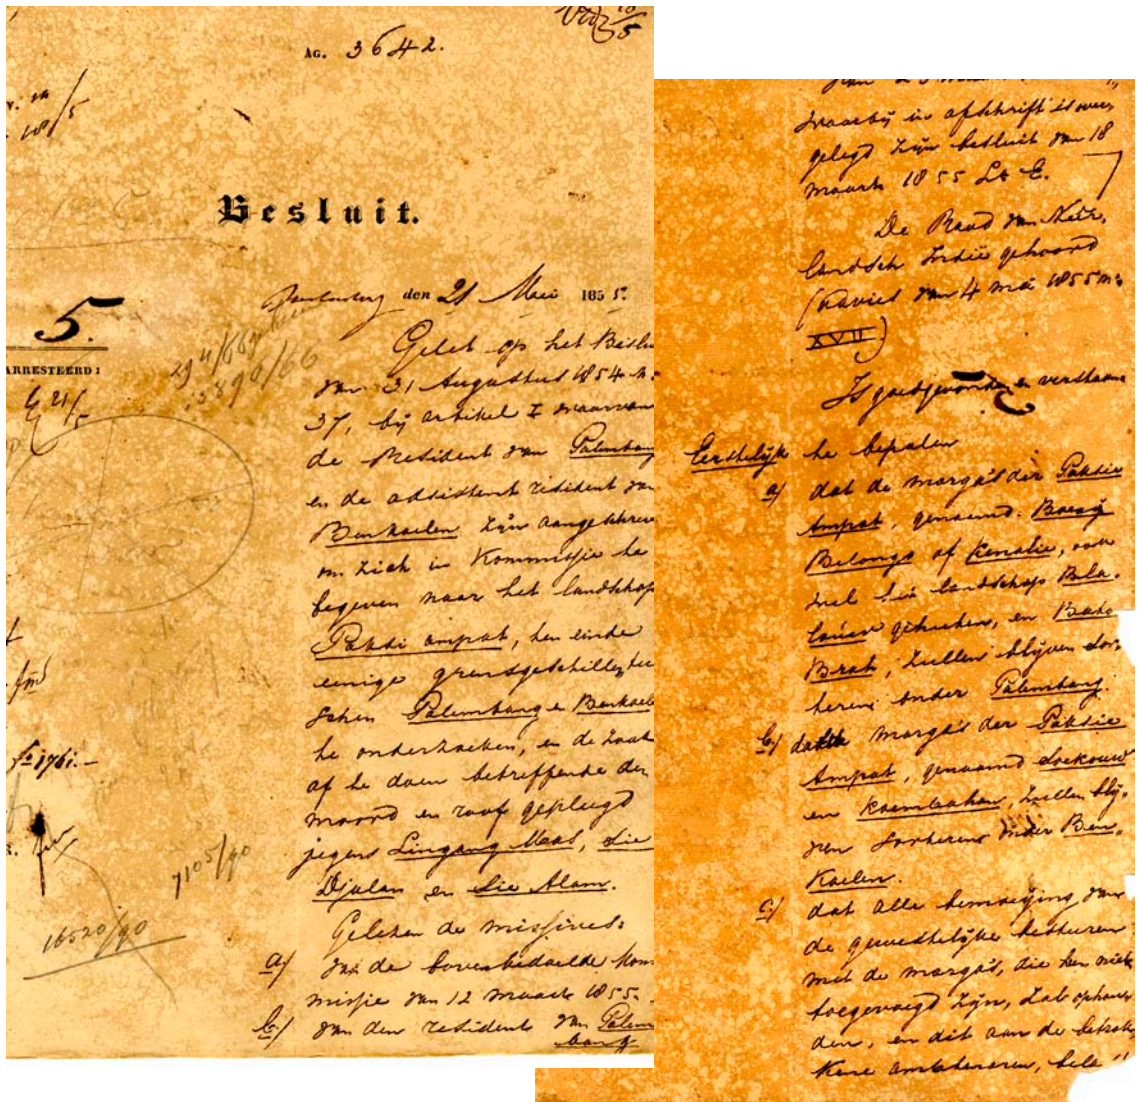 AG. 3642.
18/5
Besluit.
5.
den 21 Mei 1855.
ARRESTEERD:
21/5
29 4/66
3896/66
Gelet op het Beslu
van 31 Augustus 1854 n.
37, bij artikel I waarvan
de Resident van Palembang
en de adsistent resident van
Benkoelen zijn aangeschreve
om zich in Kommissie te
begeven naar het landschap
Paksi ampat, ten einde
eenige grensgeschillen tus
schen Palembang en Benkoele
te onderzoeken, en de zaak
af te doen betreffende den
moord en roof gepleegd
jegens Lingang Maas, Sie
Djalan en Sie Alam.
Gelezen de missives:
a/ van de bovenbedoelde Kom
missie van 12 maart 1855.
b/ van den resident van Palem
bang
f 1761.—
7105/90
16520/90
waarbij in afschrift is over
gelegd zijn besluit van 18
maart 1855 La E.
De Raad van Neder.
landsch Indië gehoord
(advies van 4 mei 1855 no.
XVII)
Is goedgevonden en verstaan
Eerstelijk te bepalen
a/ dat de marga's der Paksie
Ampat, genaamd: Boeaij
Belongo of Kenalie, ook
wel tin landschap Bela.
louw geheeten, en Batoe
Brak, zullen blijven sor,
teren onder Palembang.
b/ dat de marga's der Paksie
Ampat, genaamd Soekouw
en Koembahan, zullen blij,
ven sorteren onder Ben,
koelen.
c/ dat alle bemoeijing van
de gewestelijke besturen
met de marga's, die hen niet
toegevoegd zijn, zal ophou
den, en dit aan de betrok
kene ambtenaren, bela"